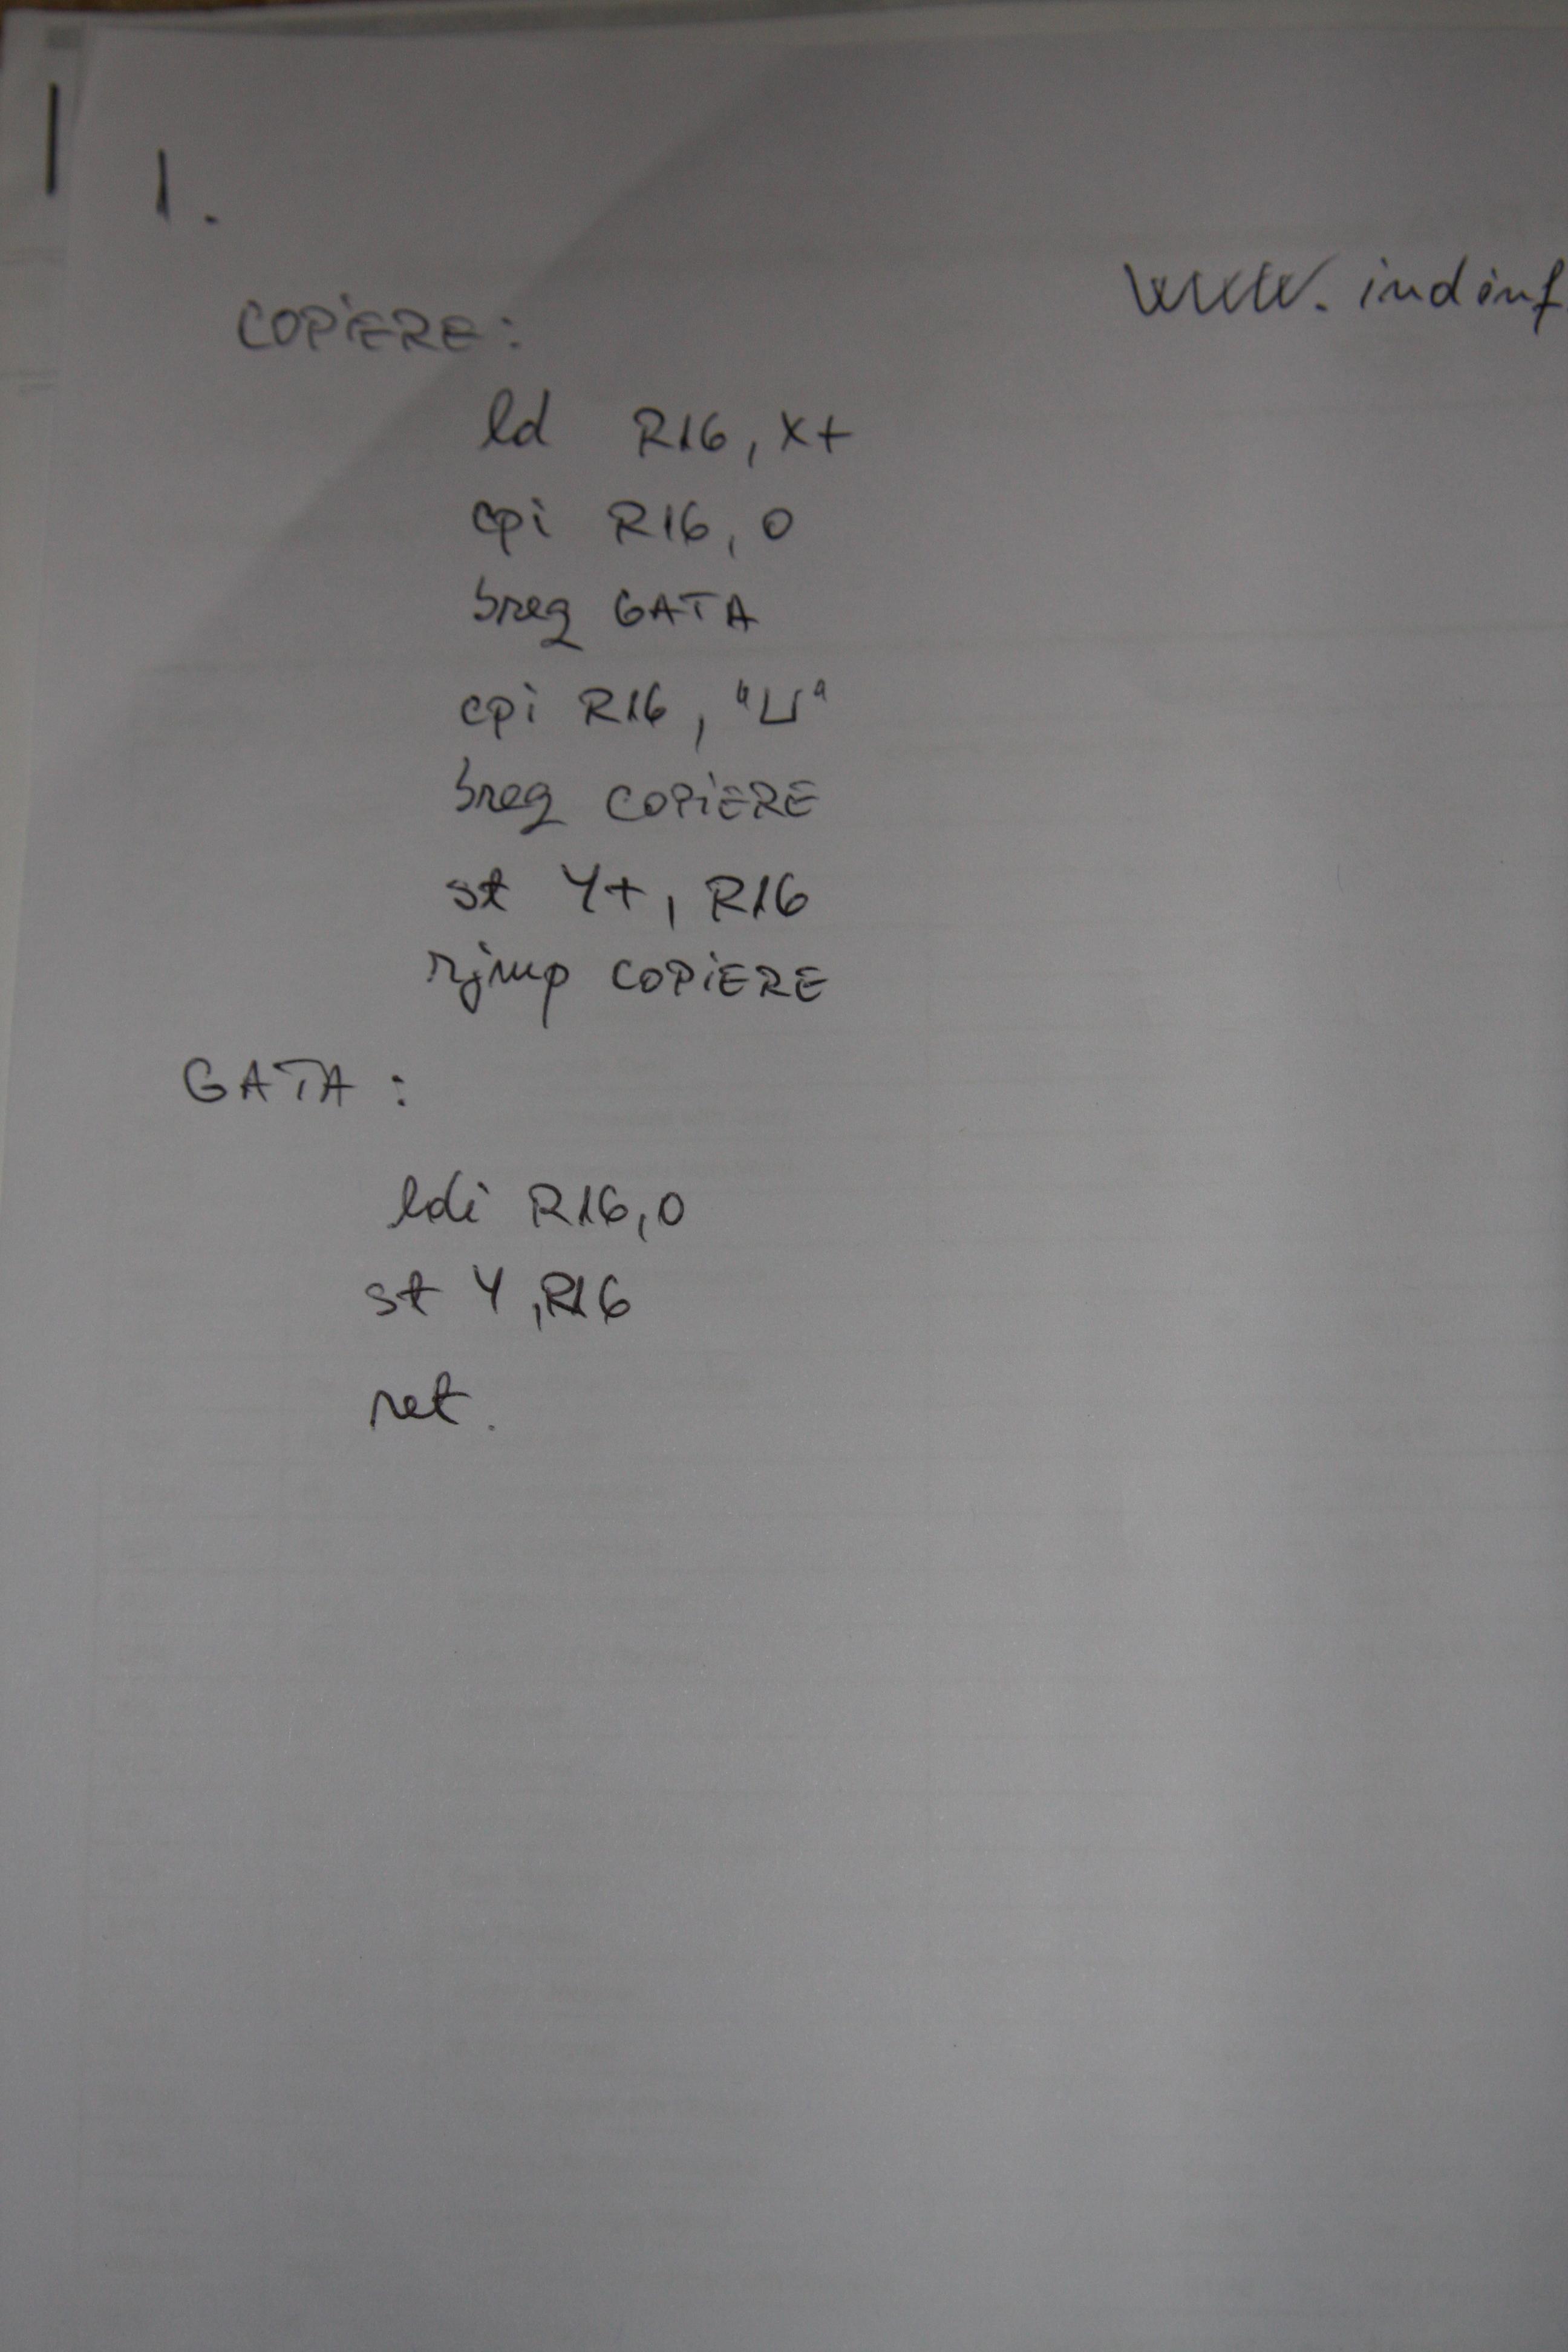 1.
www.indinf
COPiERE:
ld R16, X+
cpi R16, 0
breq GATA
cpi R16, "⊔"
breq COPiERE
st Y+, R16
rjmp COPiERE
GATA:
ldi R16, 0
st Y, R16
ret.